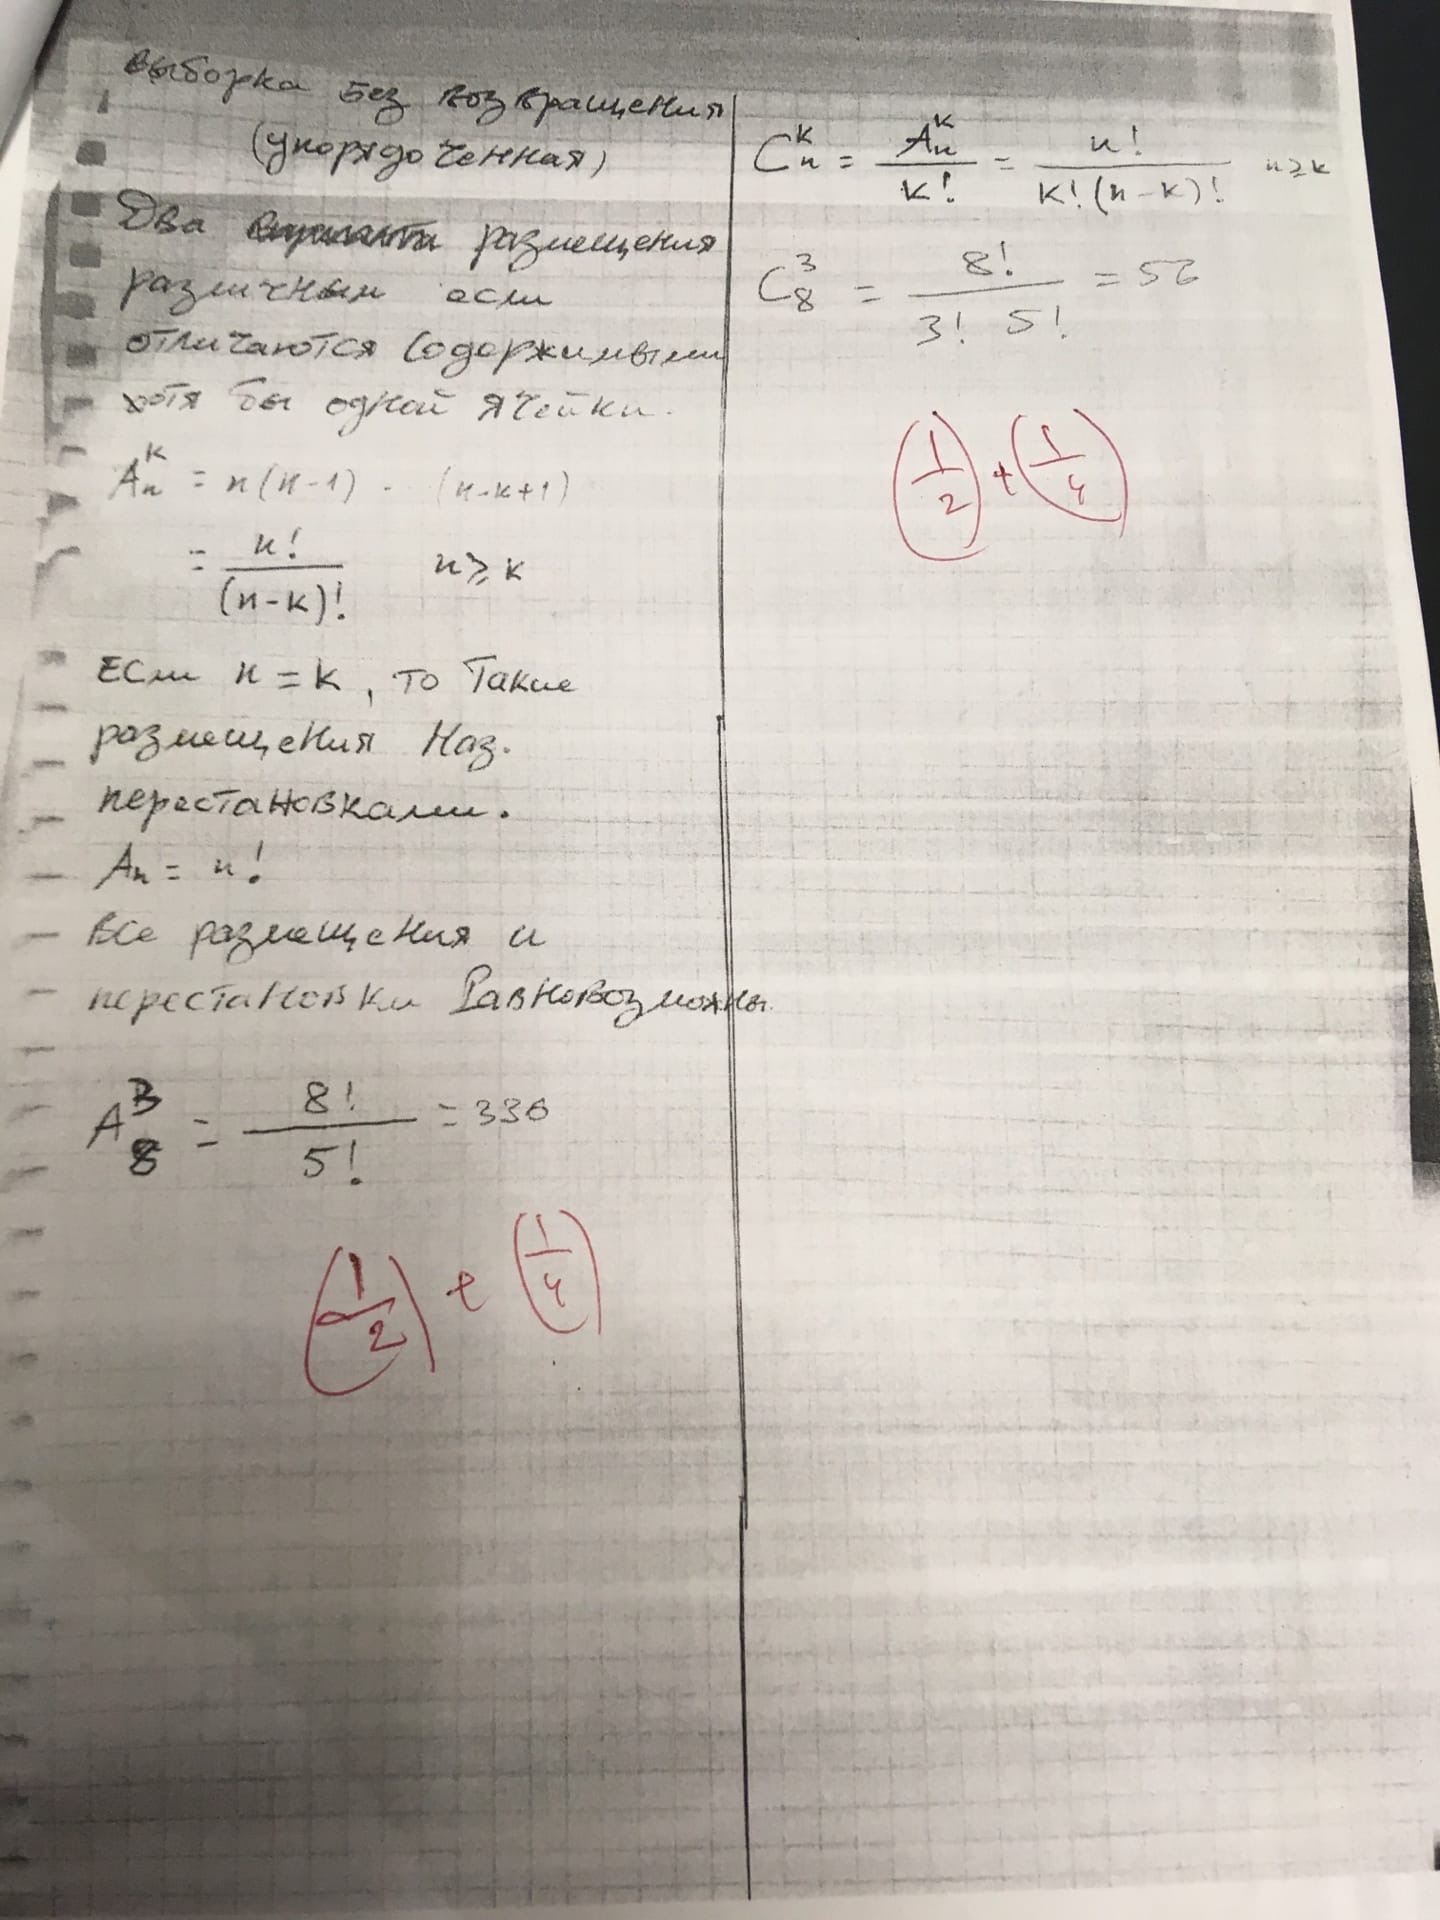 выборка без возвращения
(упорядоченная)
Два размещения
различным если
отличаются содержимыми
хотя бы одной ячейки.
Aₙᵏ = n(n-1) - (n-k+1)
= n! / (n-k)! n ≥ k
Если n = k, то такие
размещения наз.
перестановками.
Aₙ = n!
все размещения и
перестановки Равновозможны.
A₈³ = 8! / 5! = 336
(1/2) + (1/4)
Cₙᵏ = Aₙᵏ / k! = n! / k!(n-k)! n ≥ k
C₈³ = 8! / 3! 5! = 56
(1/2) + (1/4)